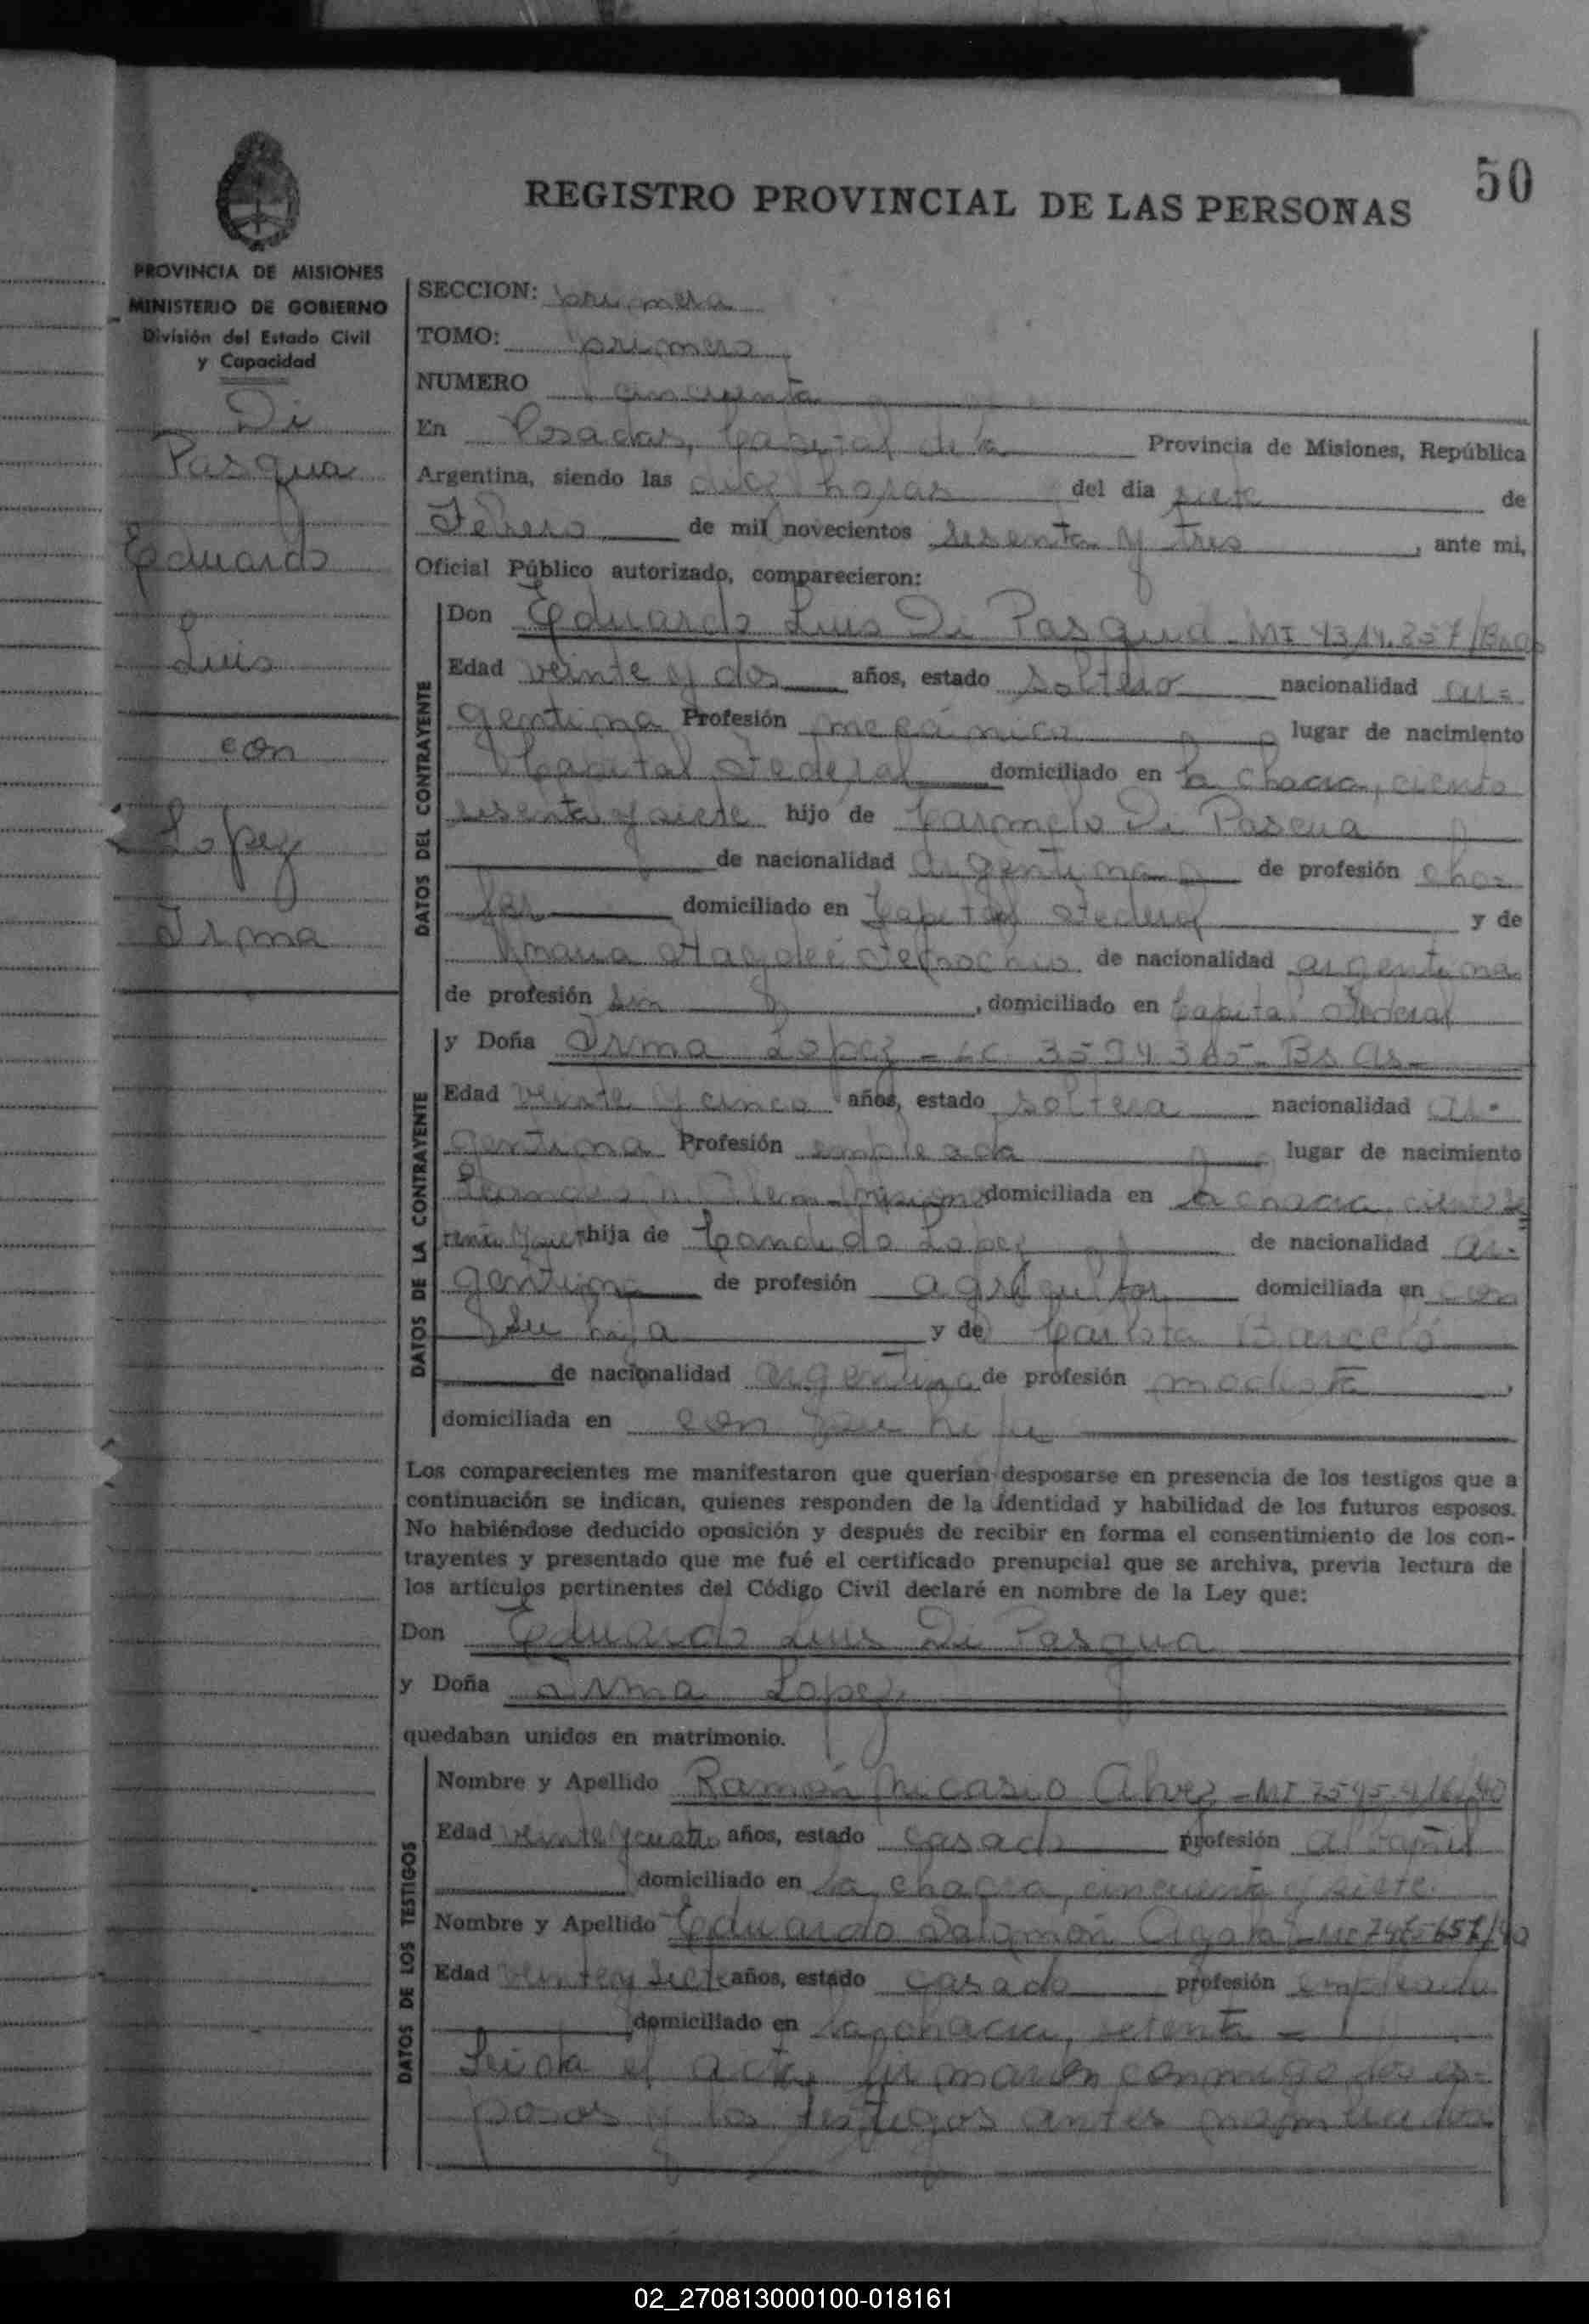 50
REGISTRO PROVINCIAL DE LAS PERSONAS
PROVINCIA DE MISIONES
MINISTERIO DE GOBIERNO
División del Estado Civil
y Capacidad
Di
Pasqua
Eduardo
Luis
con
Lopez
Irma
SECCION: primera
TOMO: primero
NUMERO cincuenta
En Posadas, Capital de la Provincia de Misiones, República
Argentina, siendo las diez horas del día siete de
Febrero de mil novecientos sesenta y tres, ante mi,
Oficial Público autorizado, comparecieron:
DATOS DEL CONTRAYENTE
Don Eduardo Luis Di Pasqua - MI
Edad veinte y dos años, estado soltero nacionalidad ar=
gentina Profesión mecánico lugar de nacimiento
Capital Federal domiciliado en la chacra, ciento
sesenta y siete hijo de Carmelo Di Pascua
de nacionalidad argentina de profesión cho=
fer domiciliado en Capital Federal y de
Maria de nacionalidad argentina
de profesión sin, domiciliado en Capital Federal
DATOS DE LA CONTRAYENTE
y Doña Irma Lopez - LC. Bs As -
Edad veinte y cinco años, estado soltera nacionalidad ar-
gentina Profesión empleada lugar de nacimiento
Leandro N Alem - Misiones domiciliada en la chacra, ciento se
hija de Candido Lopez de nacionalidad ar-
gentina de profesión agricultor domiciliada en con
su hija y de Carlota
de nacionalidad argentina de profesión modista,
domiciliada en con su hija
Los comparecientes me manifestaron que querían desposarse en presencia de los testigos que a
continuación se indican, quienes responden de la identidad y habilidad de los futuros esposos.
No habiéndose deducido oposición y después de recibir en forma el consentimiento de los con-
trayentes y presentado que me fué el certificado prenupcial que se archiva, previa lectura de
los artículos pertinentes del Código Civil declaré en nombre de la Ley que:
Don Eduardo Luis Di Pasqua
y Doña Irma Lopez
quedaban unidos en matrimonio.
DATOS DE LOS TESTIGOS
Nombre y Apellido Ramón Nicasio Alvez - MI
Edad veinte y cuatro años, estado casado profesión albañil
domiciliado en la chacra, cincuenta y siete.
Nombre y Apellido Eduardo Salomón
Edad veinte y siete años, estado casado profesión empleado
domiciliado en la chacra, setenta =
Leida el acta, firmaron conmigo los es-
posos y los testigos antes nombrados
02_270813000100-018161